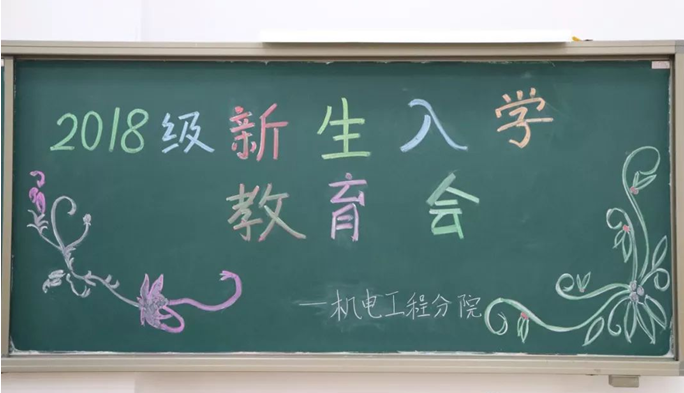 2018级新生入学
教育会
—机电工程分院